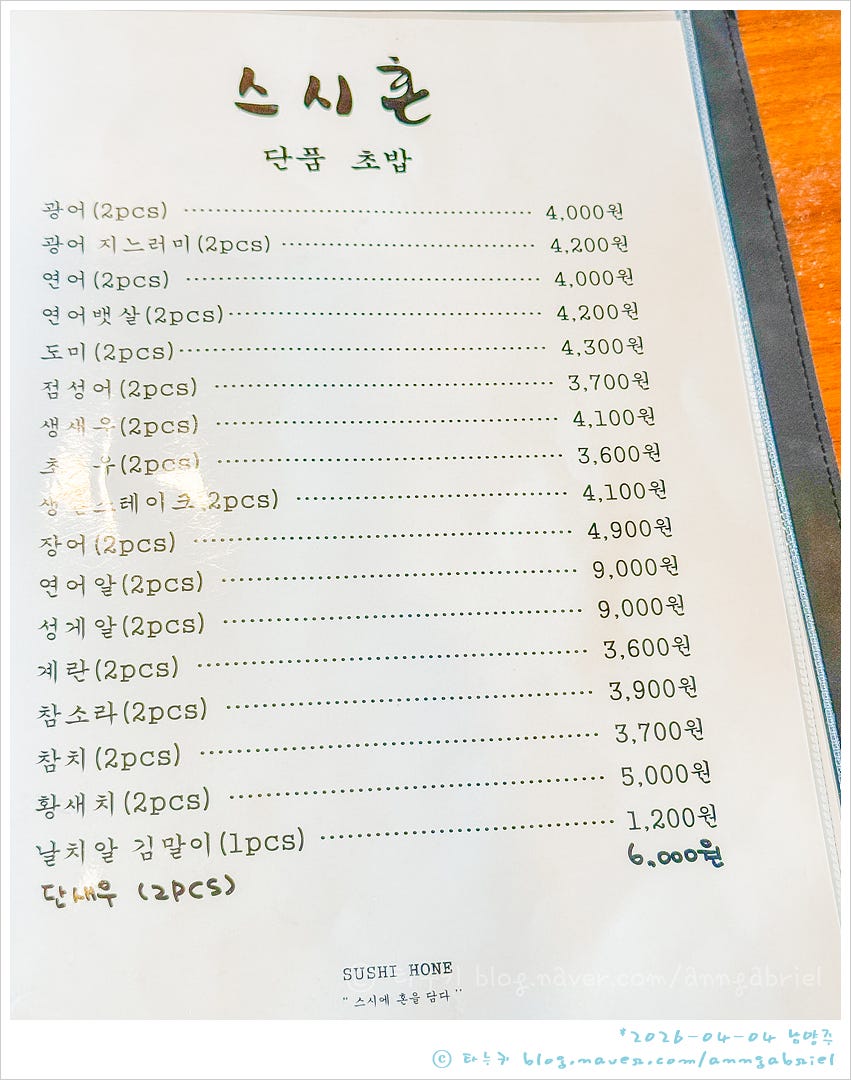 스시혼
단품 초밥
광어(2pcs) 4,000원
광어 지느러미(2pcs) 4,200원
연어(2pcs) 4,000원
연어뱃살(2pcs) 4,200원
도미(2pcs) 4,300원
점성어(2pcs) 3,700원
생새우(2pcs) 4,100원
초새우(2pcs) 3,600원
스테이크(2pcs) 4,100원
장어(2pcs) 4,900원
연어알(2pcs) 9,000원
성게알(2pcs) 9,000원
계란(2pcs) 3,600원
참소라(2pcs) 3,900원
참치(2pcs) 3,700원
황새치(2pcs) 5,000원
날치알 김말이(1pcs) 1,200원
단새우 (2PCS) 6,000원
SUSHI HONE
" 스시에 혼을 담다 "
ⓒ 타누키 blog.naver.com/anngabriel
*2026-04-04 남양주
ⓒ 타누키 blog.naver.com/anngabriel